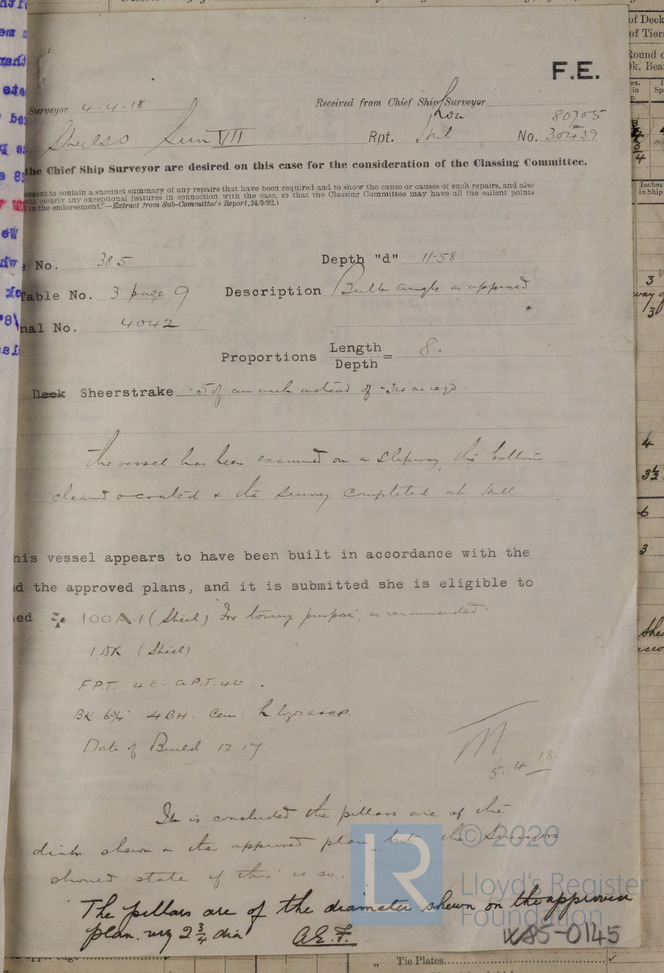 F.E.
Surveyor 4.4.18 Received from Chief Ship Surveyor
80705
Sun VII Rpt. Hul No. 30439
the Chief Ship Surveyor are desired on this case for the consideration of the Classing Committee.
ement to contain a succinct summary of any repairs that have been required and to show the cause or causes of such repairs, and also
out clearly any exceptional features in connection with the case, so that the Classing Committee may have all the salient points
in the endorsement."—Extract from Sub-Committee's Report, 24/5/92.)
No. 38.5 Depth "d" 11.58
able No. 3 page 9 Description Bulb angle as approved
nal No. 4042
Proportions Length
Depth = 8.
Deck Sheerstrake .5 of an inch instead of .34 as
The vessel has been examined on a slipway, the bottom
cleaned & coated & the survey completed at Hull
his vessel appears to have been built in accordance with the
d the approved plans, and it is submitted she is eligible to
ed 100A1 (Steel) "For towing purposes" is recommended.
1 DK (Steel)
F.P.T. 4t. A.P.T. 4t.
BK 6¾ 4BH. Cem.
Date of Build 12.17
5.4.18
It is concluded the pillars are of the
diam shewn on the approved plan, but the Surveyors
should state if this is so.
The pillars are of the diameter shewn on the approved
plan. viz 2¾ dia A.E.F.
© 2020
Lloyd's Register
Foundation
W85-0145
of Deck
of Tier
Round of
Dk. Bea
Inches
in Ship
3
4
3½
6
3
„ Tie Plates